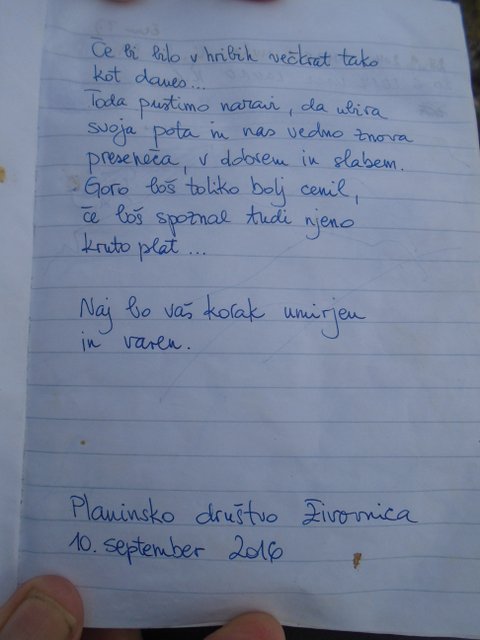 Če bi bilo v hribih večkrat tako
kot danes...
Toda pustimo naravi, da ubira
svoja pota in nas vedno znova
preseneča, v dobrem in slabem.
Goro boš toliko bolj cenil,
če boš spoznal tudi njeno
kruto plat...
Naj bo vaš korak umirjen
in varen.
Planinsko društvo Žirovnica
10. september 2016